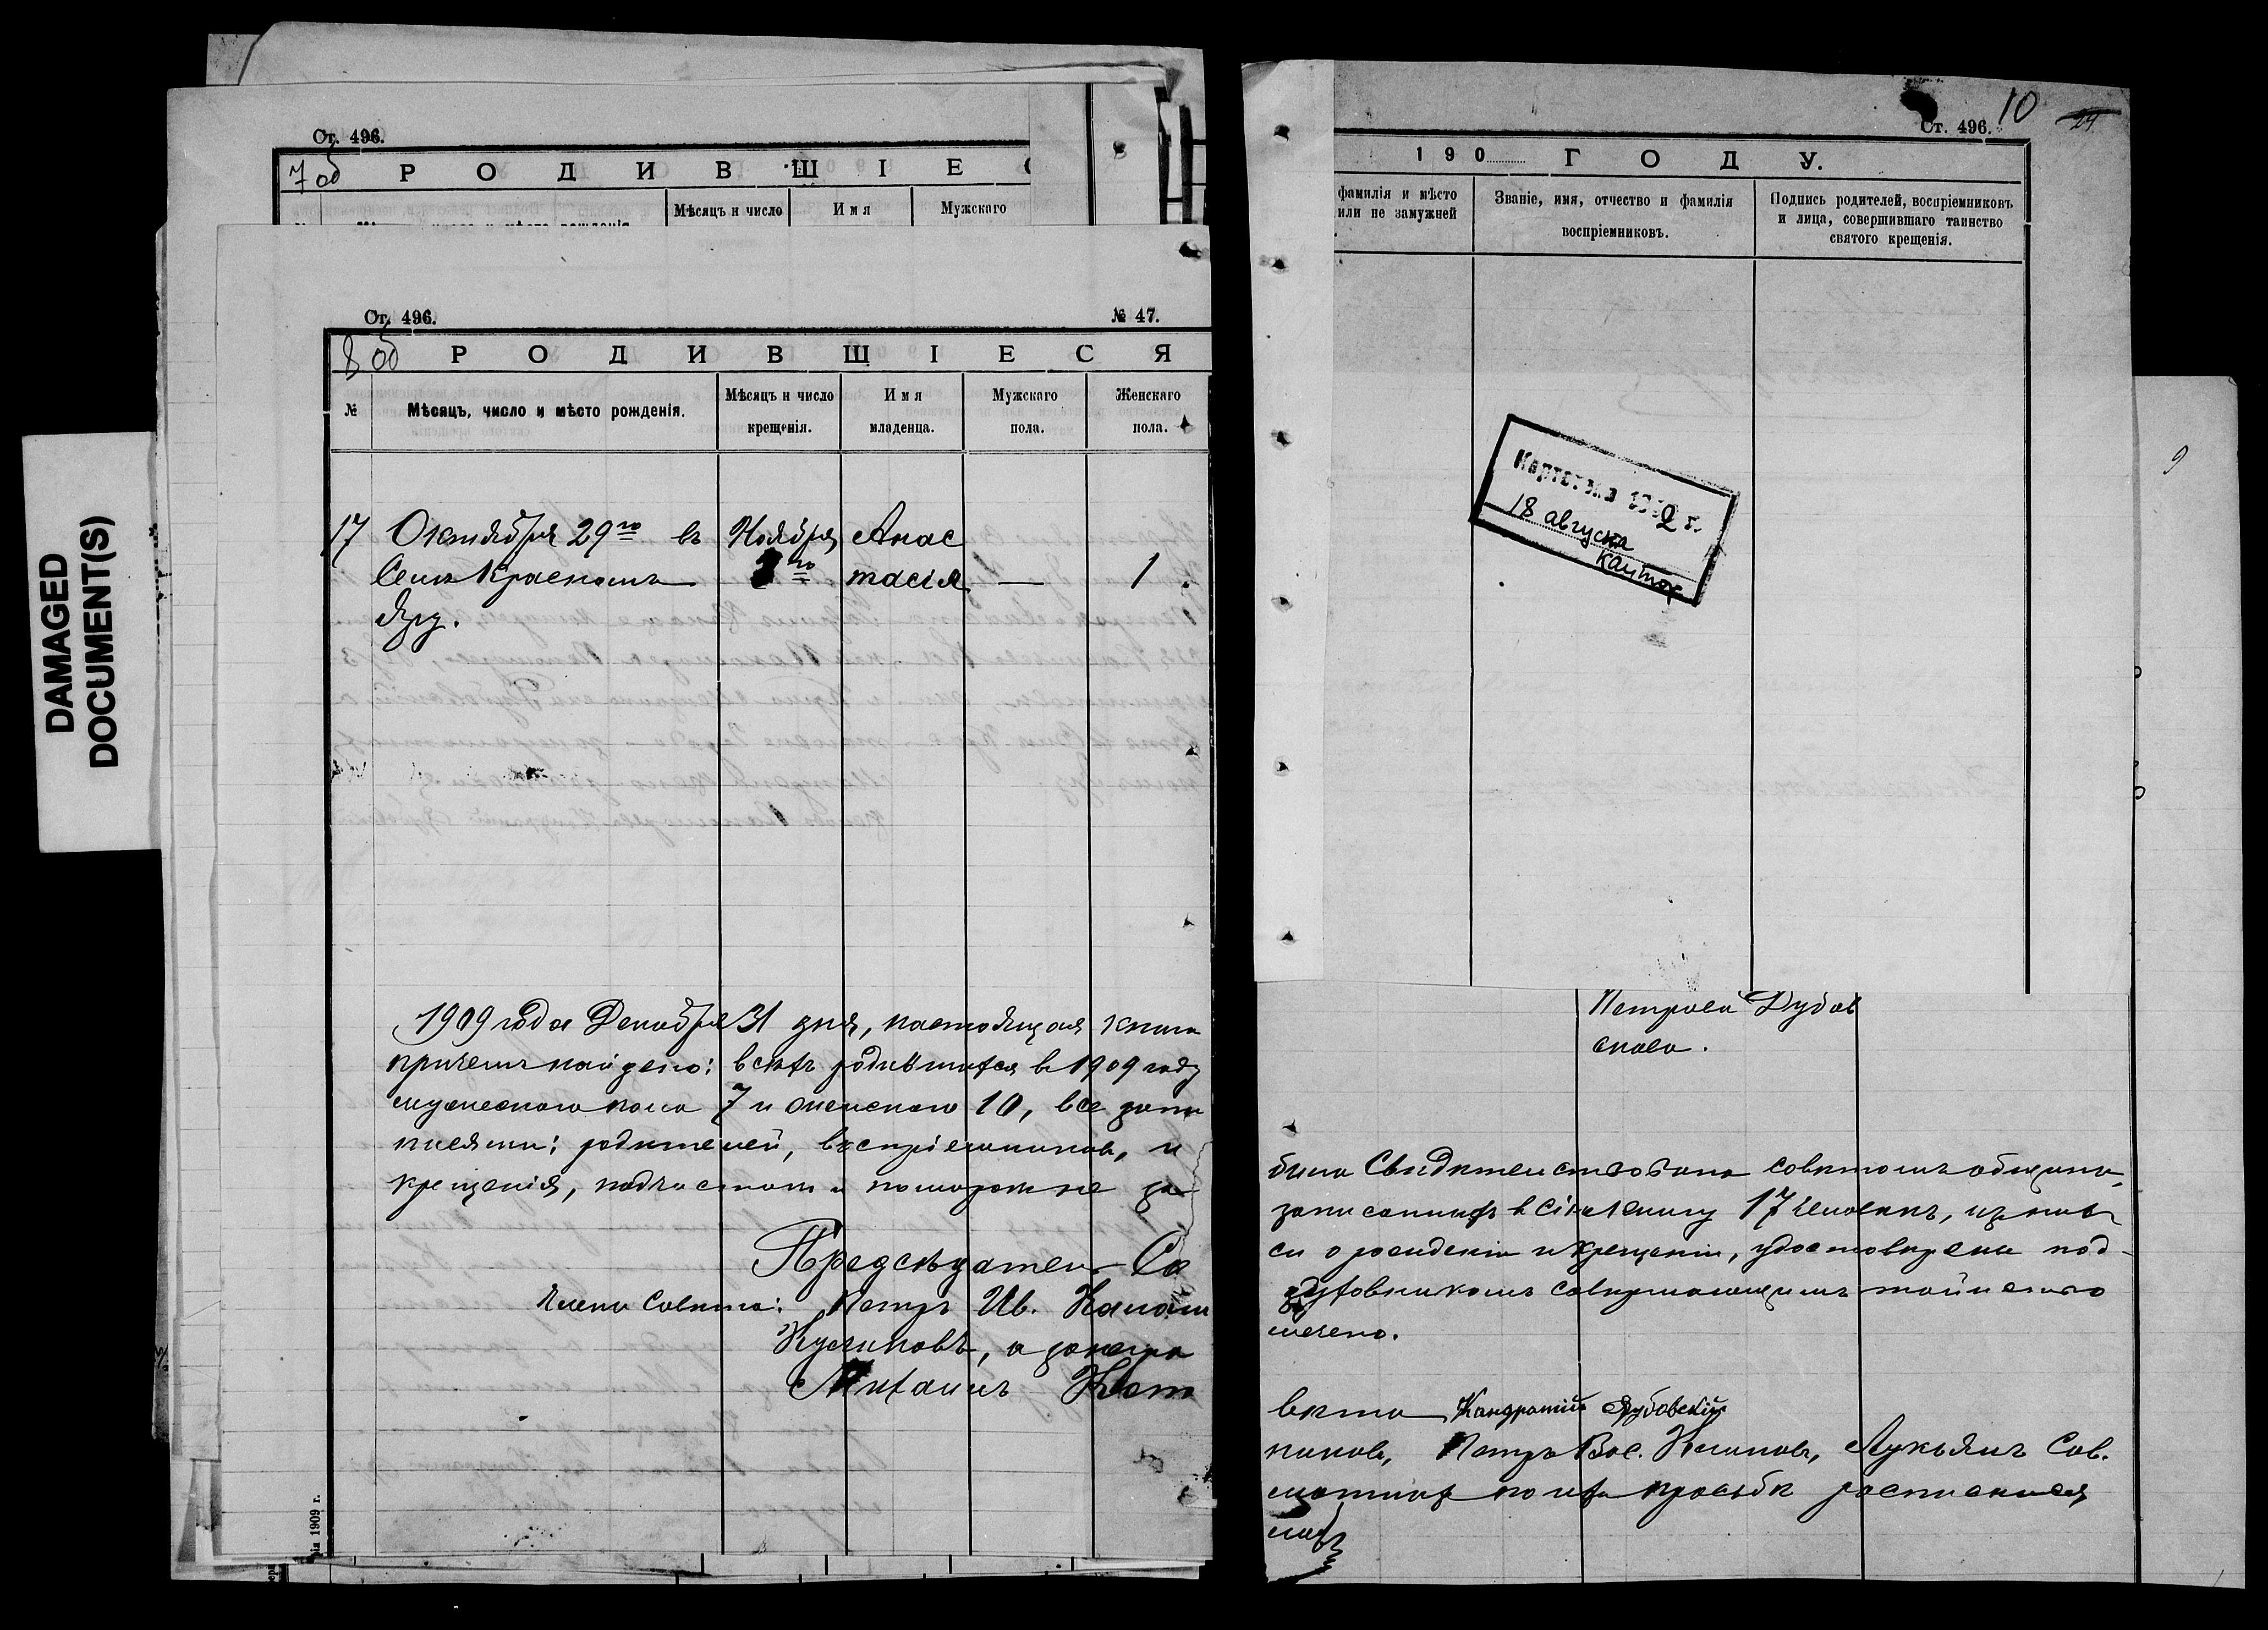 DAMAGED
DOCUMENT(S)
Ст. 496.
7 об
Р О Д И В Ш І Е
Мѣсяцъ и число
Имя
Мужскаго
Ст. 496.
№ 47.
8 об
Р О Д И В Ш І Е С Я
№
Мѣсяцъ, число и мѣсто рожденія.
Мѣсяцъ и число
крещенія.
Имя
младенца.
Мужскаго
пола.
Женскаго
пола.
17 Октября 29го въ Ноября Анас
Селѣ Красномъ 3го тасія — 1.
Яру.
1909 года Декабря 31 дня, настоящая книга
причемъ найдено: всѣхъ родившихся в 1909 году
мужескаго пола 7 и женскаго 10, все запи
писями: родителей, воспріемниковъ, и
крещенія, подчисток и помарок не за
Предсѣдатель Со
Члены Совѣта: Петръ Ив.
Кусчиковъ, а
Михаилъ
іа 1909 г.
10
24
Ст. 496.
190 Г О Д У.
фамилія и мѣсто
или не замужней
Званіе, имя, отчество и фамилія
воспріемниковъ.
Подпись родителей, воспріемниковъ
и лица, совершившаго таинство
святого крещенія.
18 августа
9
Петрова Дубов
скаго.
была Свидѣтельствована совѣтомъ общины,
записанныхъ в сію книгу 17 человекъ,
си о рожденіи и крещеніи, удостоверены под-
духовникомъ совершающимъ тайнство
мечено.
вѣта Кандратій Дубовскій
никовъ, Петръ Вас. Климовъ, Лукьянъ Сав.
по ихъ просьбѣ росписался